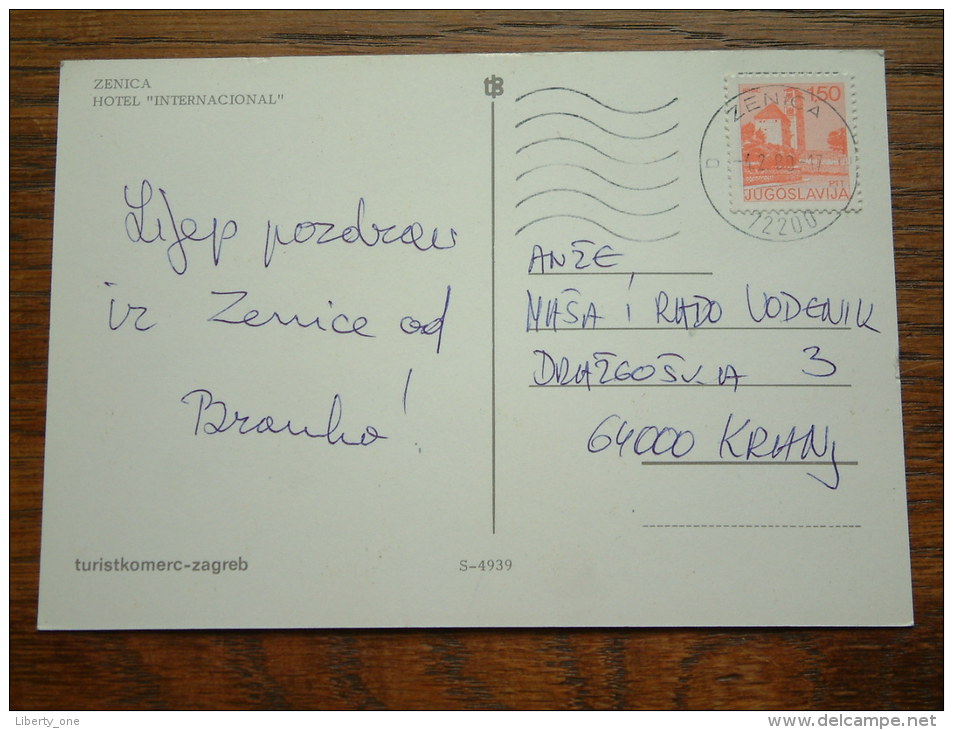 ZENICA
HOTEL "INTERNACIONAL"
Lijep pozdrav
iz Zenice od
Branka!
turistkomerc-zagreb
S-4939
ZENICA
1,50
PTT
JUGOSLAVIJA
72200
ANŽE,
MAŠA I RADO VODENIK
DRAŽGOŠKA 3
64000 KRANJ
Liberty_one
delcampe.net